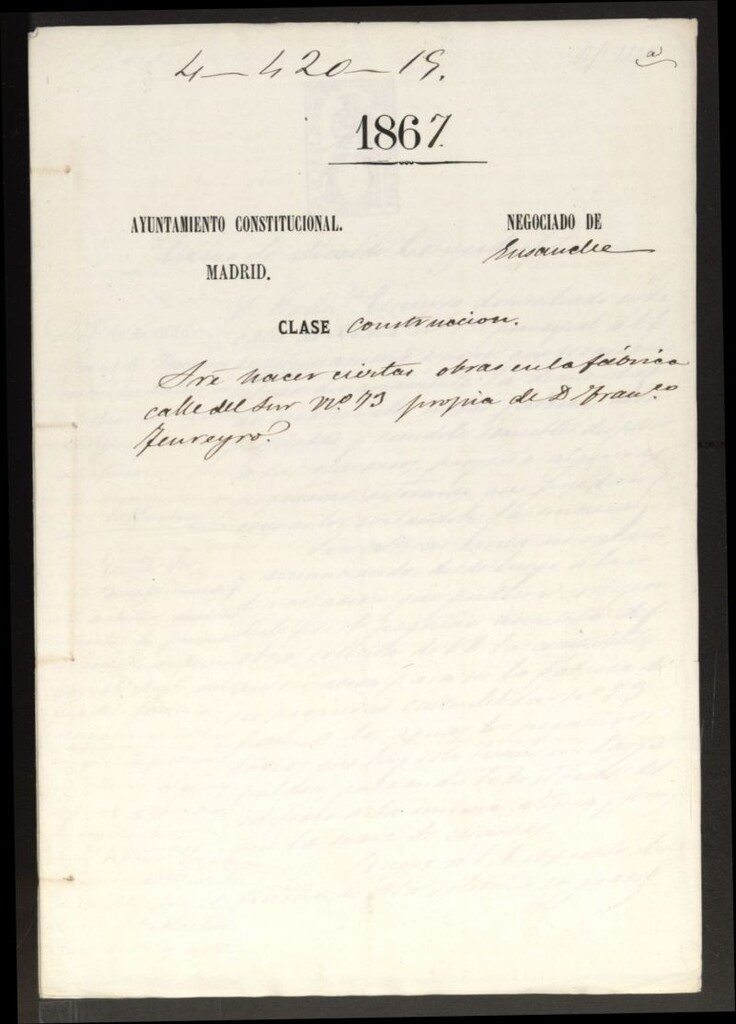 4-420-19.
a
1867.
AYUNTAMIENTO CONSTITUCIONAL.
NEGOCIADO DE
Ensanche
MADRID.
CLASE Construccion.
Sre hacer ciertas obras en la fábrica
calle del Sur nº 73 propia de D Franco